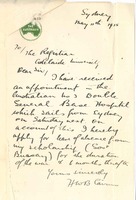 Sydney
May 11th 1915
To/ The Registrar
Adelaide University
Dear Sir/ I have received
an appointment in the
Australian No 3
General Base Hospital
which sails from Sydney
on Saturday next. On
account of this I hereby
apply for leave of absence from
my scholarship
for the duration
of the war
Yours sincerely